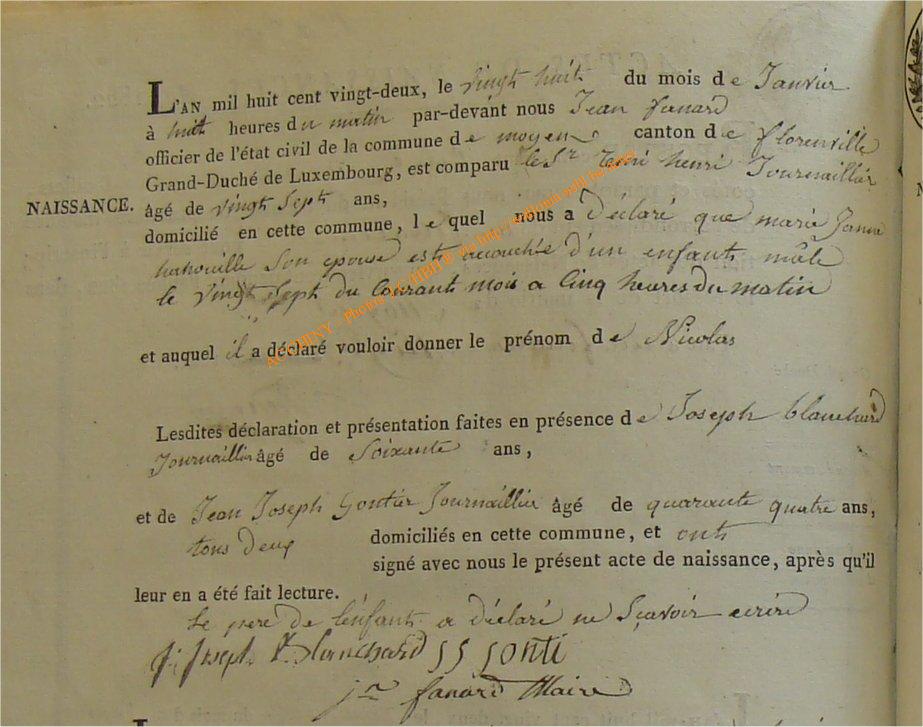 L'AN mil huit cent vingt-deux, le vingt huit du mois de Janvier
à huit heures du matin par-devant nous Jean fanard
officier de l'état civil de la commune de moyen canton de florenville
Grand-Duché de Luxembourg, est comparu le Sr henri Journaillier
NAISSANCE. âgé de vingt Sept ans,
domicilié en cette commune, lequel nous a déclaré que marie Jeanne
Son epouse est accouchée d'un enfant mâle
le vingt Sept du Courant mois a Cinq heures du matin
et auquel il a déclaré vouloir donner le prénom de Nicolas
Lesdites déclaration et présentation faites en présence de Joseph blanchard
Journaillier âgé de Soixante ans,
et de Jean Joseph Gontier Journaillier âgé de quarante quatre ans,
tous deux domiciliés en cette commune, et ont
signé avec nous le présent acte de naissance, après qu'il
leur en a été fait lecture.
Le pere de l'enfant a déclaré ne Sçavoir ecrire
Joseph Blanchard JJ Gonti
jn fanard Maire